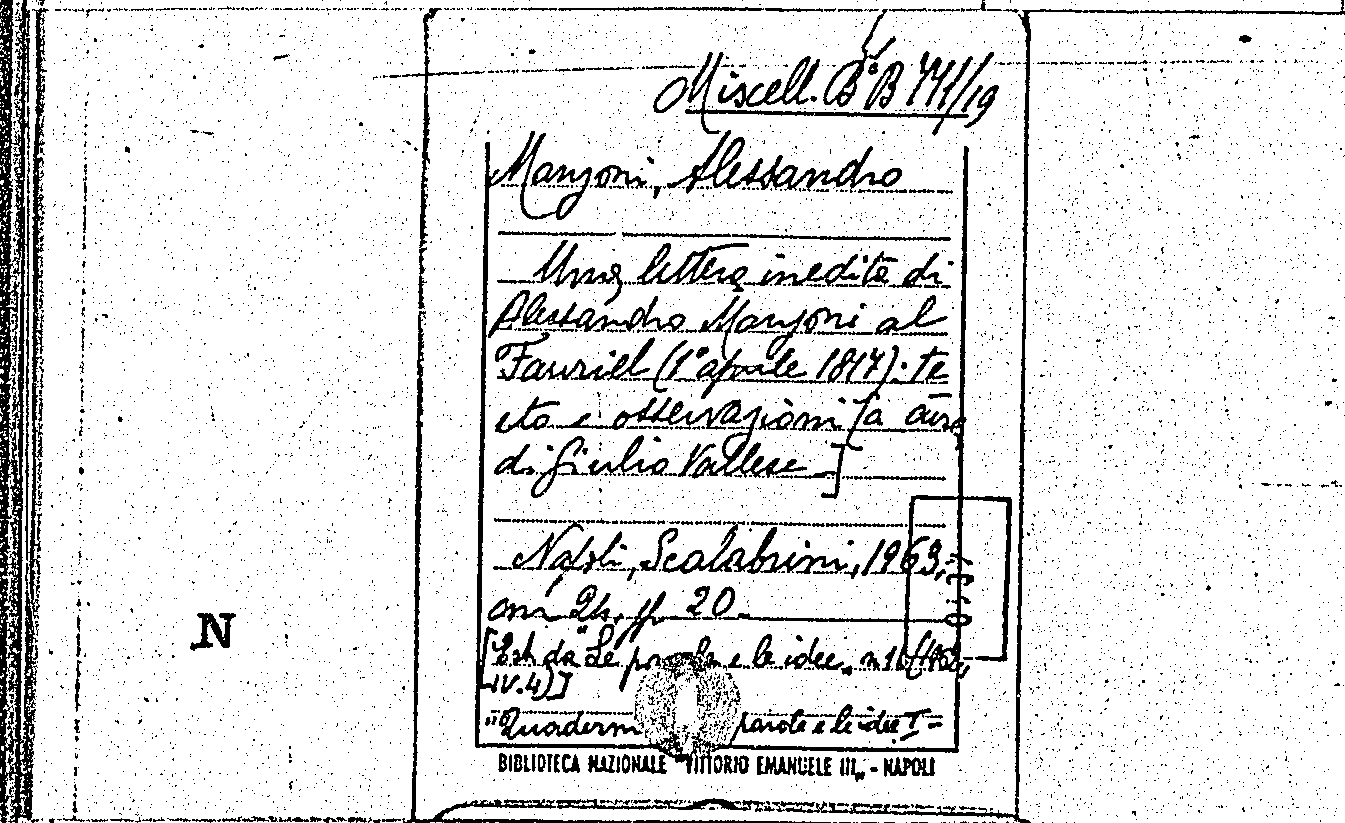 Miscell. Ba B 771/19
Manzoni, Alessandro
Una lettera inedita di
Alessandro Manzoni al
Fauriel (1° aprile 1817): te
sto e osservazioni [a cura
di Giulio Vallese]
Napoli, Scalabrini, 1963,
cm 24, pp. 20.
[Estr. da "Le parole e le idee„ n. 16
IV. 4)]
"Quaderni parole e le idee I =
BIBLIOTECA NAZIONALE "VITTORIO EMANUELE III„ - NAPOLI
N